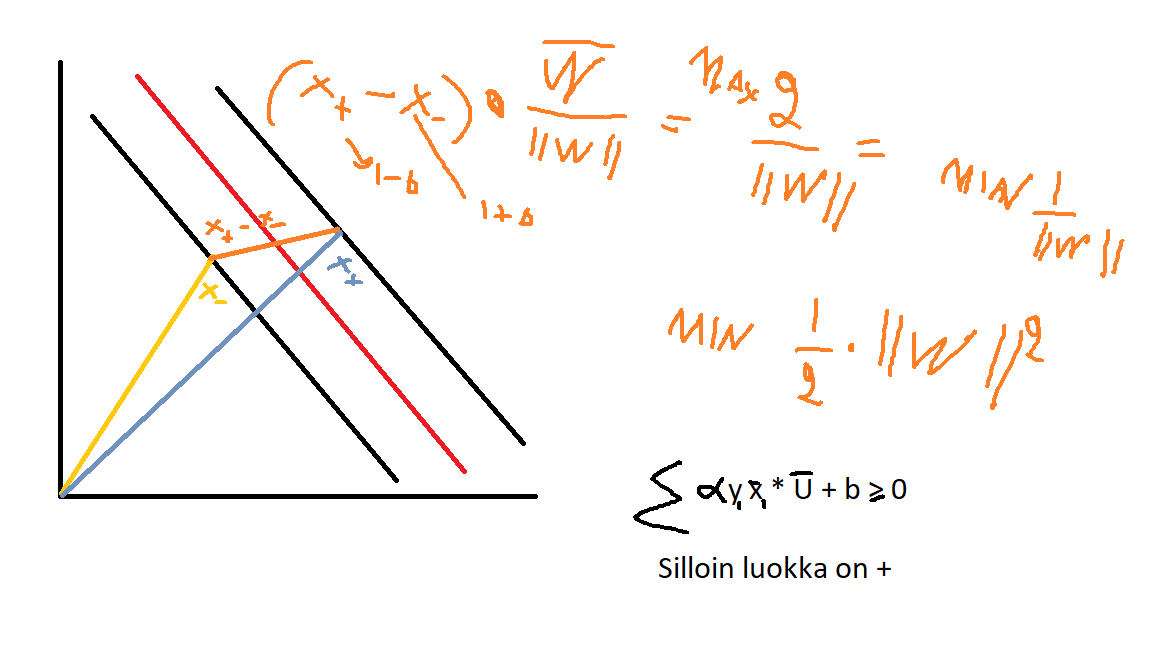 (x₊ - x₋) • W̅ / ||W|| = MAX 2 / ||W|| = MIN 1 / ||W||
1-b
1+b
x₊ - x₋
x₊
x₋
MIN 1/2 · ||W||²
∑ αyᵢx̄ᵢ * U̅ + b ≥ 0
Silloin luokka on +